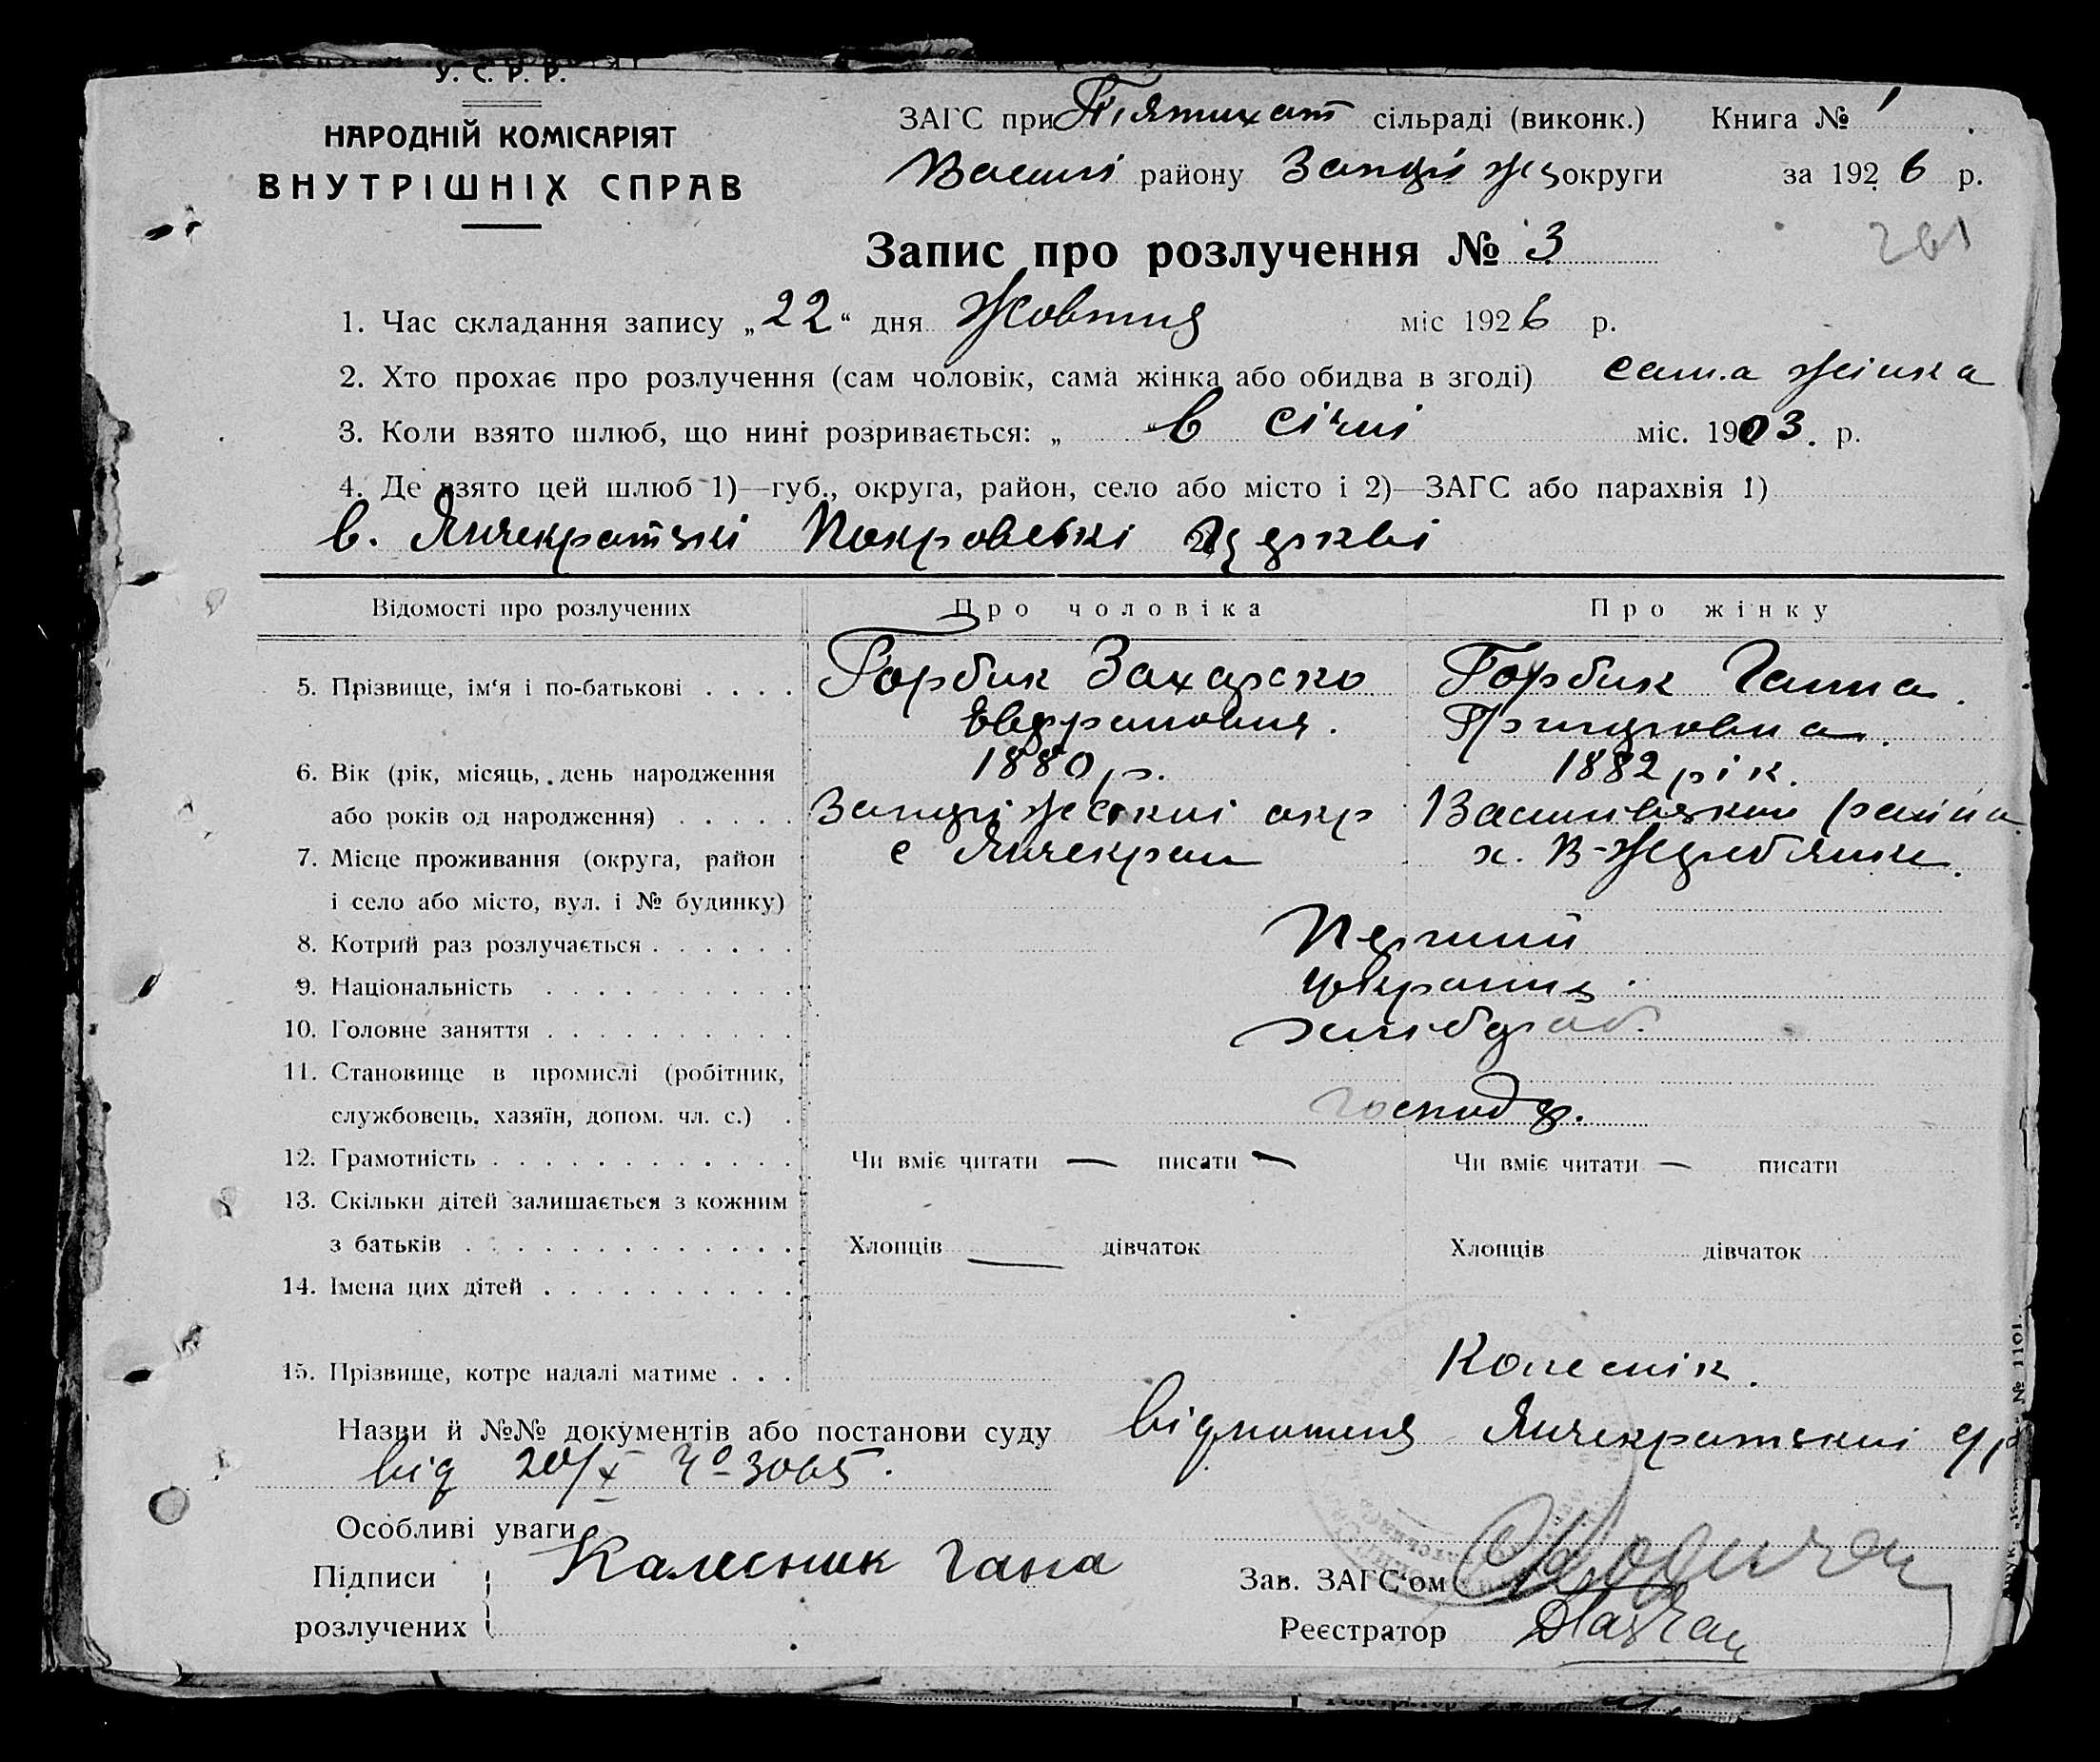 У. С. Р. Р.
НАРОДНІЙ КОМІСАРІЯТ
ВНУТРІШНІХ СПРАВ
ЗАГС при Пʼятихат сільраді (виконк.) Книга № 1
Васил району Запоріж округи за 1926 р.
Запис про розлучення № 3
261
1. Час складання запису „22“ дня Жовтня міс 1926 р.
2. Хто прохає про розлучення (сам чоловік, сама жінка або обидва в згоді) сама жінка
3. Коли взято шлюб, що нині розривається: „ в січні міс. 1903. р.
4. Де взято цей шлюб 1)—губ., округа, район, село або місто і 2)—ЗАГС або парахвія 1)
в. Янчекратські Покровські церкві
Відомості про розлучених Про чоловіка Про жінку
5. Прізвище, ім'я і по-батькові . . . . Горбик Захарько Горбик Ганна
Григоровна.
6. Вік (рік, місяць, день народження 1880 р. 1882 рік.
або років од народження) . . . . . Запоріжскиі окр Василівскоі район
7. Місце проживання (округа, район с Янчекрак х. В-Жеребянки
і село або місто, вул. і № будинку)
8. Котрий раз розлучається . . . . . . Перший
9. Національність . . . . . . . . . . українц
10. Головне заняття . . . . . . . . . . хлібороб.
11. Становище в промислі (робітник,
службовець, хазяїн, допом. чл. с.) . господ
12. Грамотність . . . . . . . . . . . . Чи вміє читати — писати — Чи вміє читати — писати
13. Скільки дітей залишається з кожним
з батьків . . . . . . . . . . . . . Хлопців — дівчаток Хлопців дівчаток
14. Імена цих дітей . . . . . . . . . .
15. Прізвище, котре надалі матиме . . . Колеснік.
Назви й №№ документів або постанови суду відношеня Янчекратськиі с/р
від 20/X № 3065.
Особливі уваги
Підписи Калесник Гана Зав. ЗАГС'ом
розлучених Реєстратор
№ 1101.